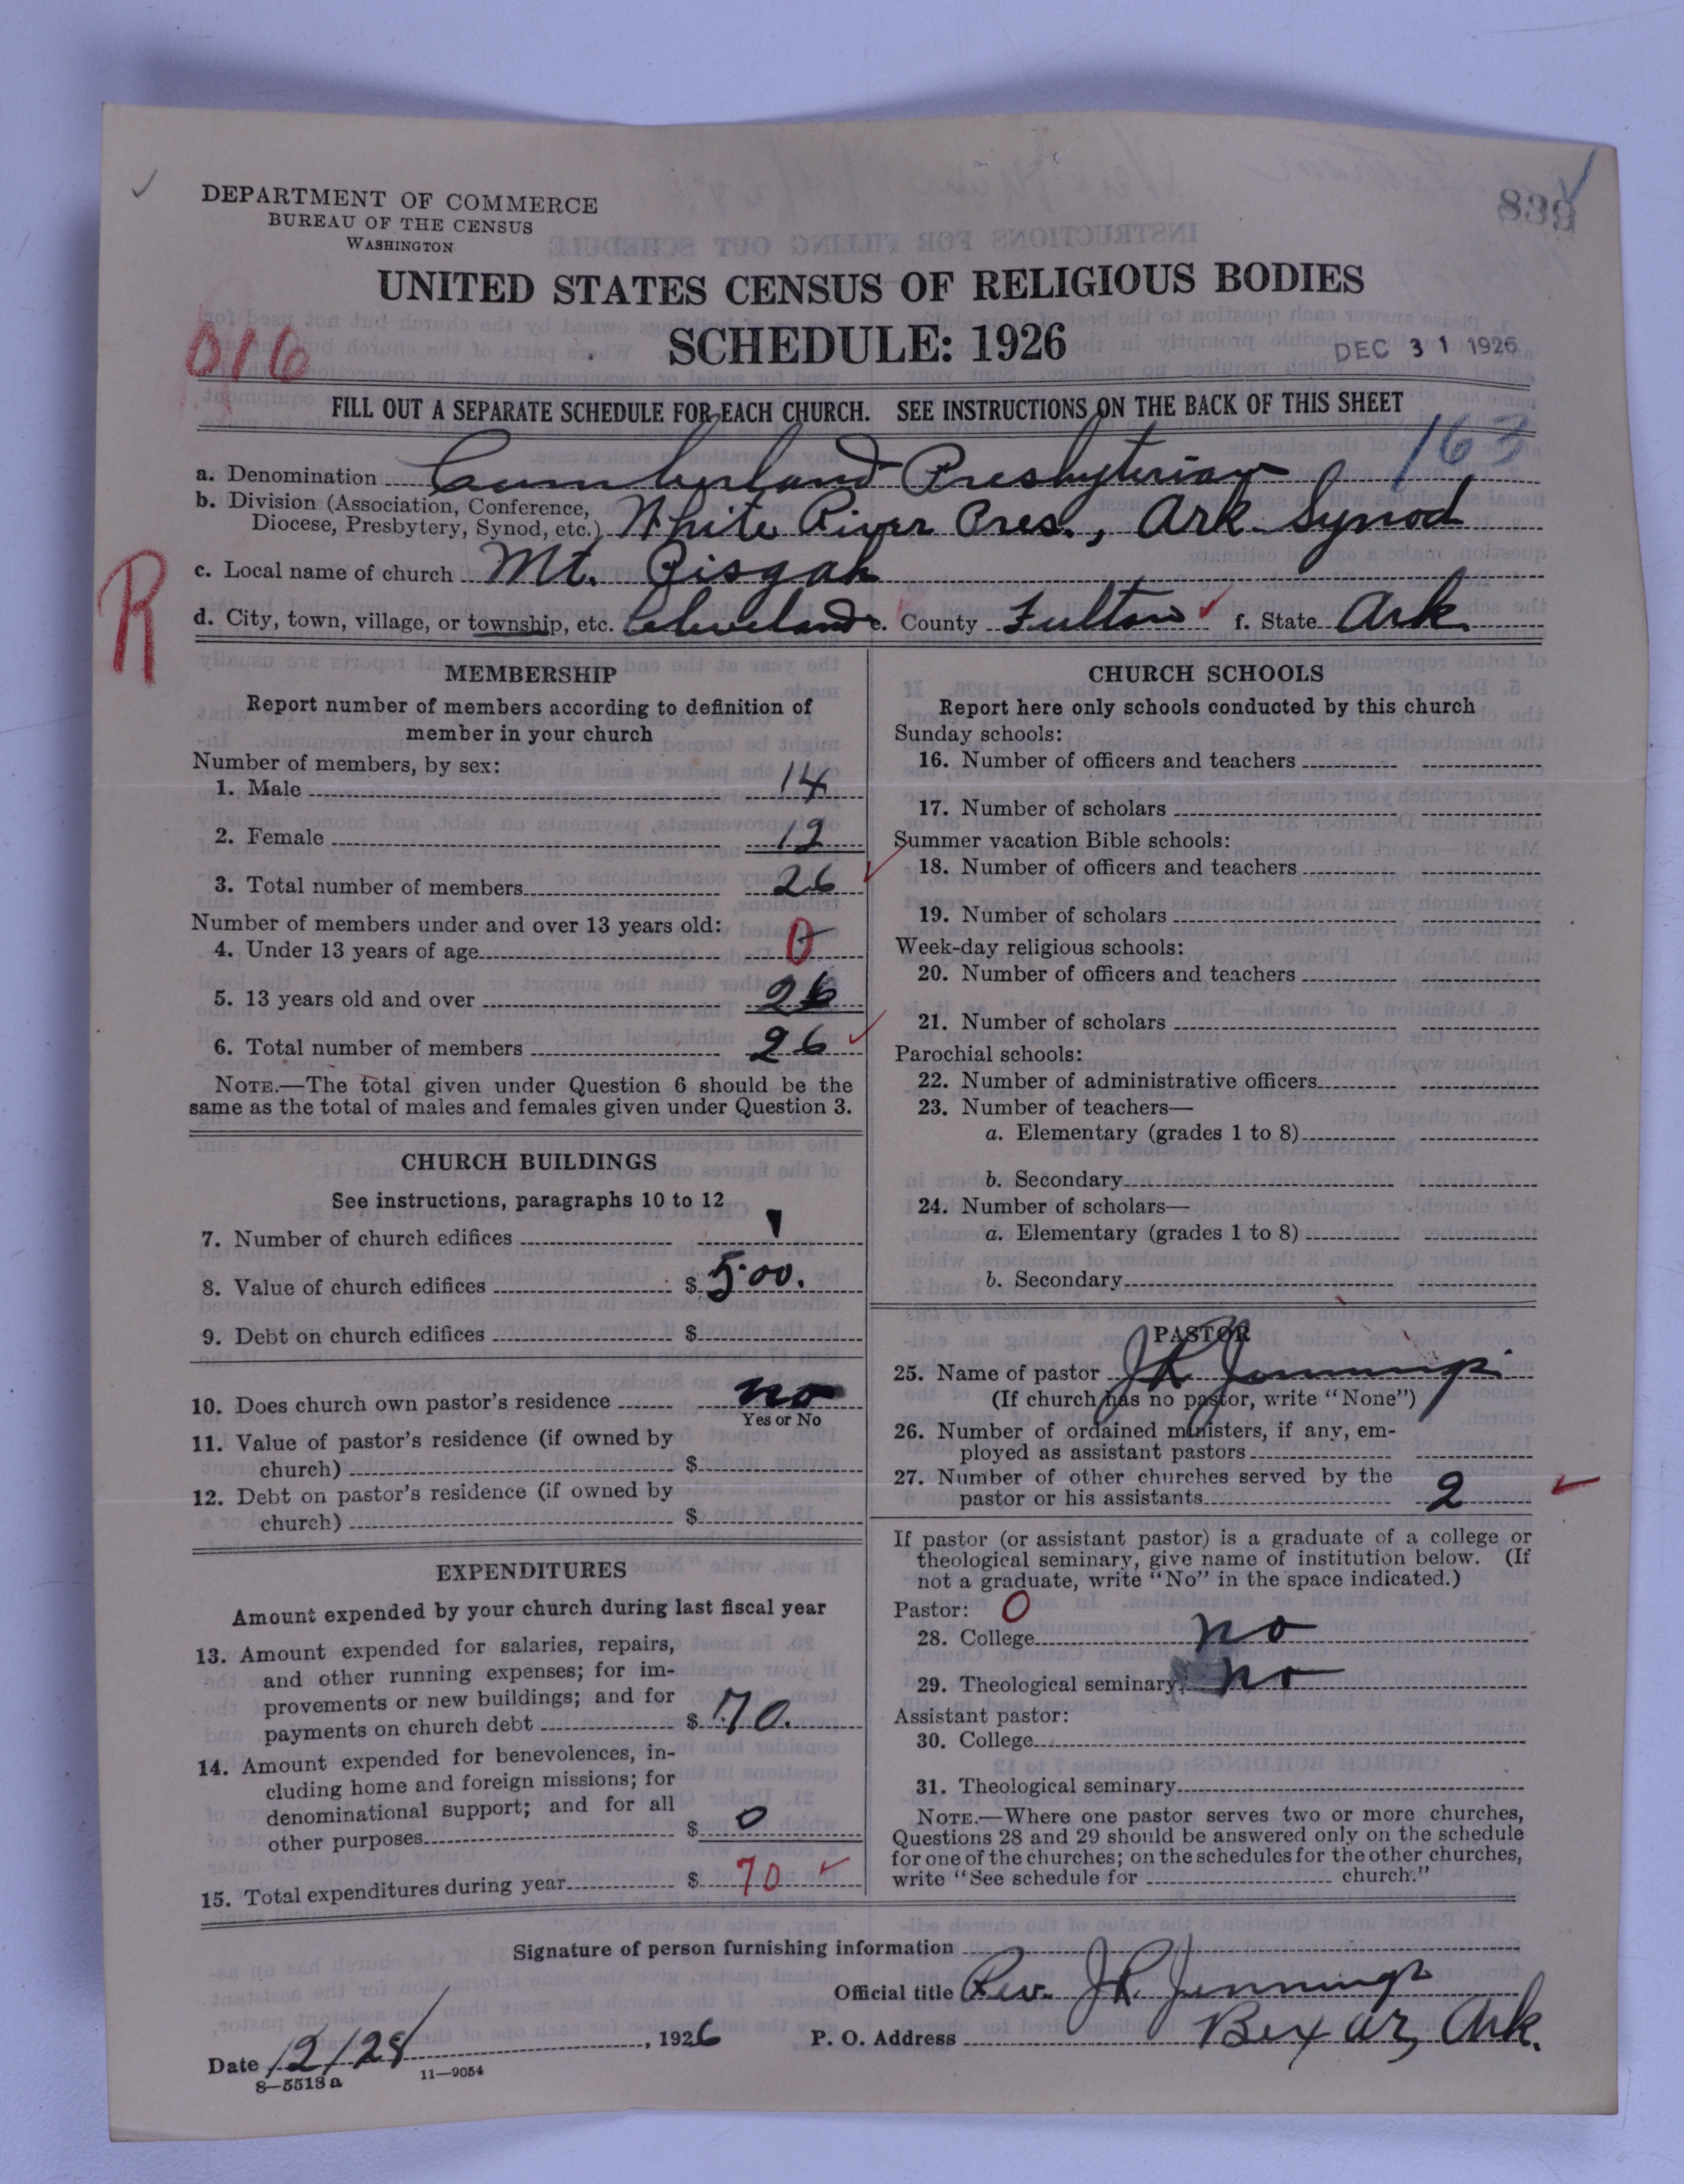 DEPARTMENT OF COMMERCE
BUREAU OF THE CENSUS
WASHINGTON
839
UNITED STATES CENSUS OF RELIGIOUS BODIES
SCHEDULE: 1926
016
DEC 31 1926
FILL OUT A SEPARATE SCHEDULE FOR EACH CHURCH. SEE INSTRUCTIONS ON THE BACK OF THIS SHEET
163
a. Denomination Cumberland Presbyterian
b. Division (Association, Conference,
Diocese, Presbytery, Synod, etc.) White River Pres., Ark. Synod
R
c. Local name of church Mt. Pisgah
d. City, town, village, or township, etc. Cleveland e. County Fulton f. State Ark.
MEMBERSHIP
Report number of members according to definition of
member in your church
Number of members, by sex:
1. Male 14
2. Female 12
3. Total number of members 26
Number of members under and over 13 years old:
4. Under 13 years of age 0
5. 13 years old and over 26
6. Total number of members 26
NOTE.—The total given under Question 6 should be the
same as the total of males and females given under Question 3.
CHURCH BUILDINGS
See instructions, paragraphs 10 to 12
7. Number of church edifices 1
8. Value of church edifices $ 500.
9. Debt on church edifices $
10. Does church own pastor's residence no
Yes or No
11. Value of pastor's residence (if owned by
church) $
12. Debt on pastor's residence (if owned by
church) $
EXPENDITURES
Amount expended by your church during last fiscal year
13. Amount expended for salaries, repairs,
and other running expenses; for im-
provements or new buildings; and for
payments on church debt $ 70.
14. Amount expended for benevolences, in-
cluding home and foreign missions; for
denominational support; and for all
other purposes $ 0
15. Total expenditures during year $ 70
CHURCH SCHOOLS
Report here only schools conducted by this church
Sunday schools:
16. Number of officers and teachers
17. Number of scholars
Summer vacation Bible schools:
18. Number of officers and teachers
19. Number of scholars
Week-day religious schools:
20. Number of officers and teachers
21. Number of scholars
Parochial schools:
22. Number of administrative officers
23. Number of teachers—
a. Elementary (grades 1 to 8)
b. Secondary
24. Number of scholars—
a. Elementary (grades 1 to 8)
b. Secondary
PASTOR
25. Name of pastor J R Jennings
(If church has no pastor, write "None")
26. Number of ordained ministers, if any, em-
ployed as assistant pastors
27. Number of other churches served by the
pastor or his assistants 2
If pastor (or assistant pastor) is a graduate of a college or
theological seminary, give name of institution below. (If
not a graduate, write "No" in the space indicated.)
Pastor: 0
28. College no
29. Theological seminary no
Assistant pastor:
30. College
31. Theological seminary
NOTE.—Where one pastor serves two or more churches,
Questions 28 and 29 should be answered only on the schedule
for one of the churches; on the schedules for the other churches,
write "See schedule for church."
Signature of person furnishing information
Official title Rev. J R Jennings
Date 12/28/, 1926 P. O. Address Bexar, Ark.
8—5513a 11—9054